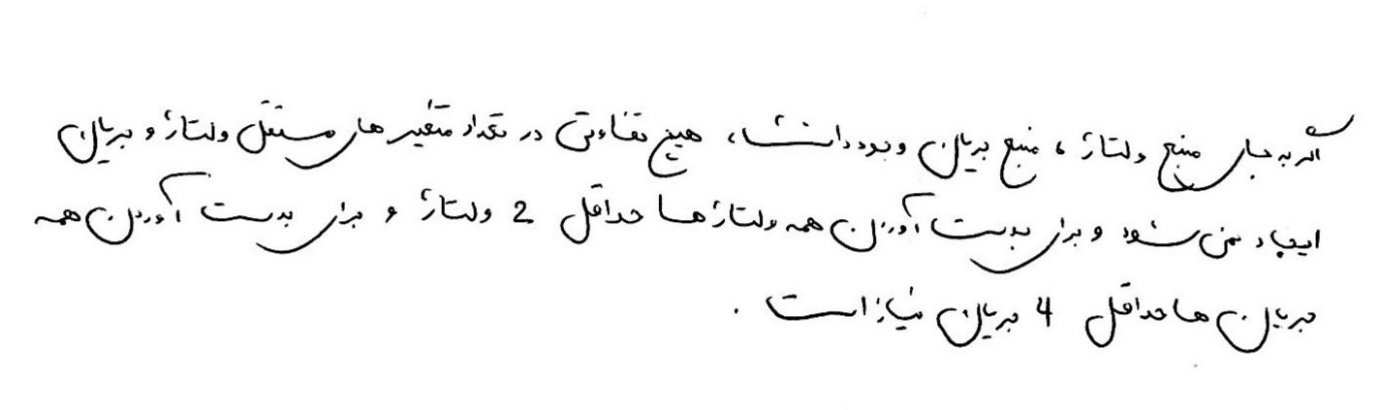 اگر به جای منبع ولتاژ ، منبع جریان وجود داشت ، هیچ تفاوتی در تعداد متغیر های مستقل ولتاژ و جریان
ایجاد نمی شود و برای بدست آوردن همه ولتاژ ها حداقل 2 ولتاژ و برای بدست آوردن همه
جریان ها حداقل 4 جریان نیاز است .